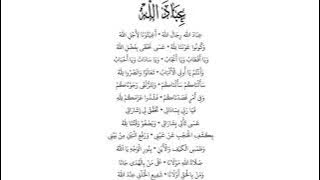 عِبَادَ اللهْ
عِبَادَ اللهْ رِجَالَ اللهْ - أَغِيثُوْنَا لِأَجْلِ اللهْ
وَكُوْنُوْا عَوْنَنَا لِلّٰهْ - عَسَى نَحْظَى بِفَضْلِ اللهْ
وَيَا أَقْطَابْ وَيَا أَنْجَابْ - وَيَا سَادَاتْ وَيَا أَحْبَابْ
وَأَنْتُمْ يَا أُولِى الْأَلْبَابْ - تَعَالَوْا وَانْصُرُوْا لِلّٰهْ
سَأَلْنَاكُمْ سَأَلْنَاكُمْ - وَلِلزُّلْفَى رَجَوْنَاكُمْ
وَفِى أَمْرٍ قَصَدْنَاكُمْ - فَشُدُّوْا عَزْمَكُمْ لِلّٰهْ
فَيَا رَبِّى بِسَادَاتِى - تَحَقَّقْ لِى إِشَارَاتِى
عَسَى تَأْتِى بِشَارَاتِى - وَيَصْفُوْ وَقْتُنَا لِلّٰهْ
بِكَشْفِ الْحُجْبِ عَنْ عَيْنِى - وَرَفْعِ الْبَيْنِ مِنْ بَيْنِى
وَطَمْسِ الْكَيْفِ وَالْأَيْنِ - بِنُوْرِ الْوَجْهِ يَا اللهْ
صَلَاةُ اللهِ مَوْلَانَا - عَلَى مَنْ بِالْهُدَى جَانَا
وَمَنْ بِالْحَقِّ أَوْلَانَا - شَفِيْعِ الْخَلْقِ عِنْدَ اللهْ